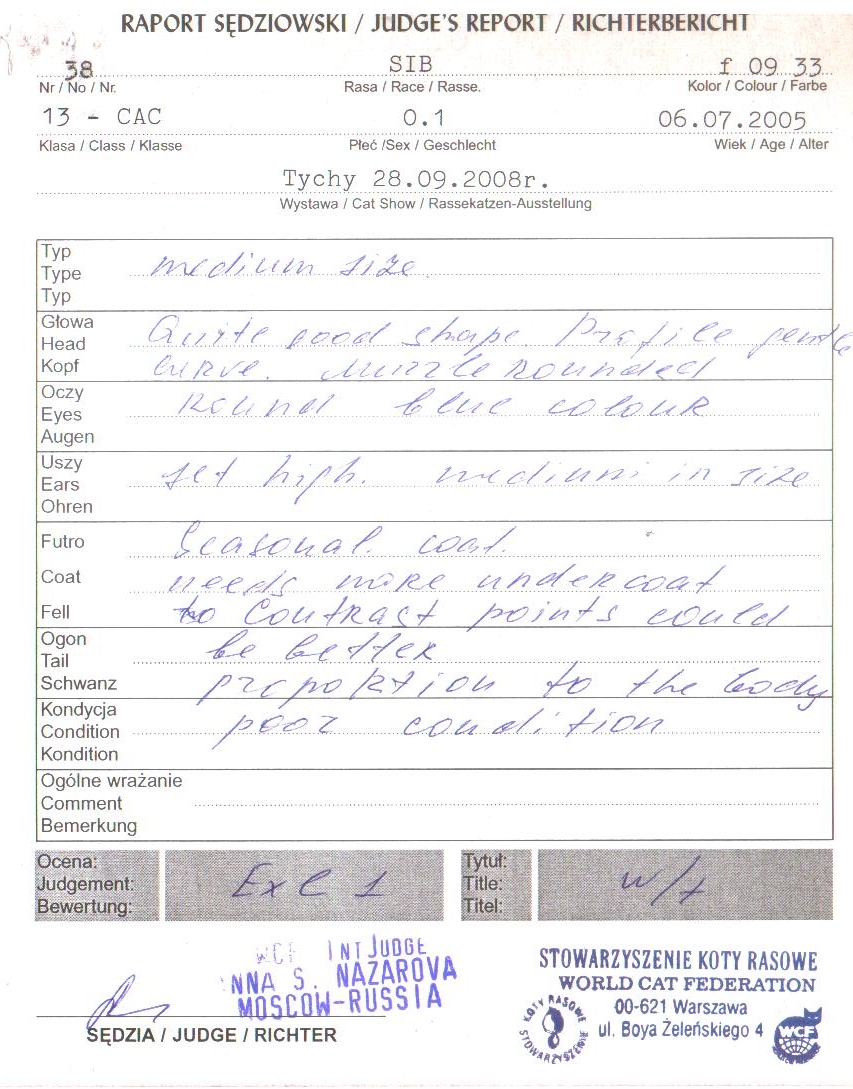 RAPORT SĘDZIOWSKI / JUDGE'S REPORT / RICHTERBERICHT
38 SIB f 09 33
Nr / No / Nr. Rasa / Race / Rasse. Kolor / Colour / Farbe
13 - CAC 0.1 06.07.2005
Klasa / Class / Klasse Płeć /Sex / Geschlecht Wiek / Age / Alter
Tychy 28.09.2008r.
Wystawa / Cat Show / Rassekatzen-Ausstellung
Typ
Type medium size
Typ
Głowa
Head Quite good shape. Profile gentle
Kopf curve. Muzzle rounded
Oczy
Eyes Round blue colour
Augen
Uszy
Ears set high. medium in size
Ohren
Futro Seasonal. coat.
Coat needs more undercoat
Fell to Contrast points could
Ogon
Tail be better
Schwanz proportion to the body
Kondycja
Condition poor condition
Kondition
Ogólne wrażanie
Comment
Bemerkung
Ocena:
Judgement: Exc 1
Bewertung:
Tytuł:
Title: w/t
Titel:
WCF INT JUDGE
NNA S. NAZAROVA
MOSCOW-RUSSIA
SĘDZIA / JUDGE / RICHTER
STOWARZYSZENIE KOTY RASOWE
WORLD CAT FEDERATION
00-621 Warszawa
ul. Boya Żeleńskiego 4
KOTY RASOWE
STOWARZYSZENIE
WCF